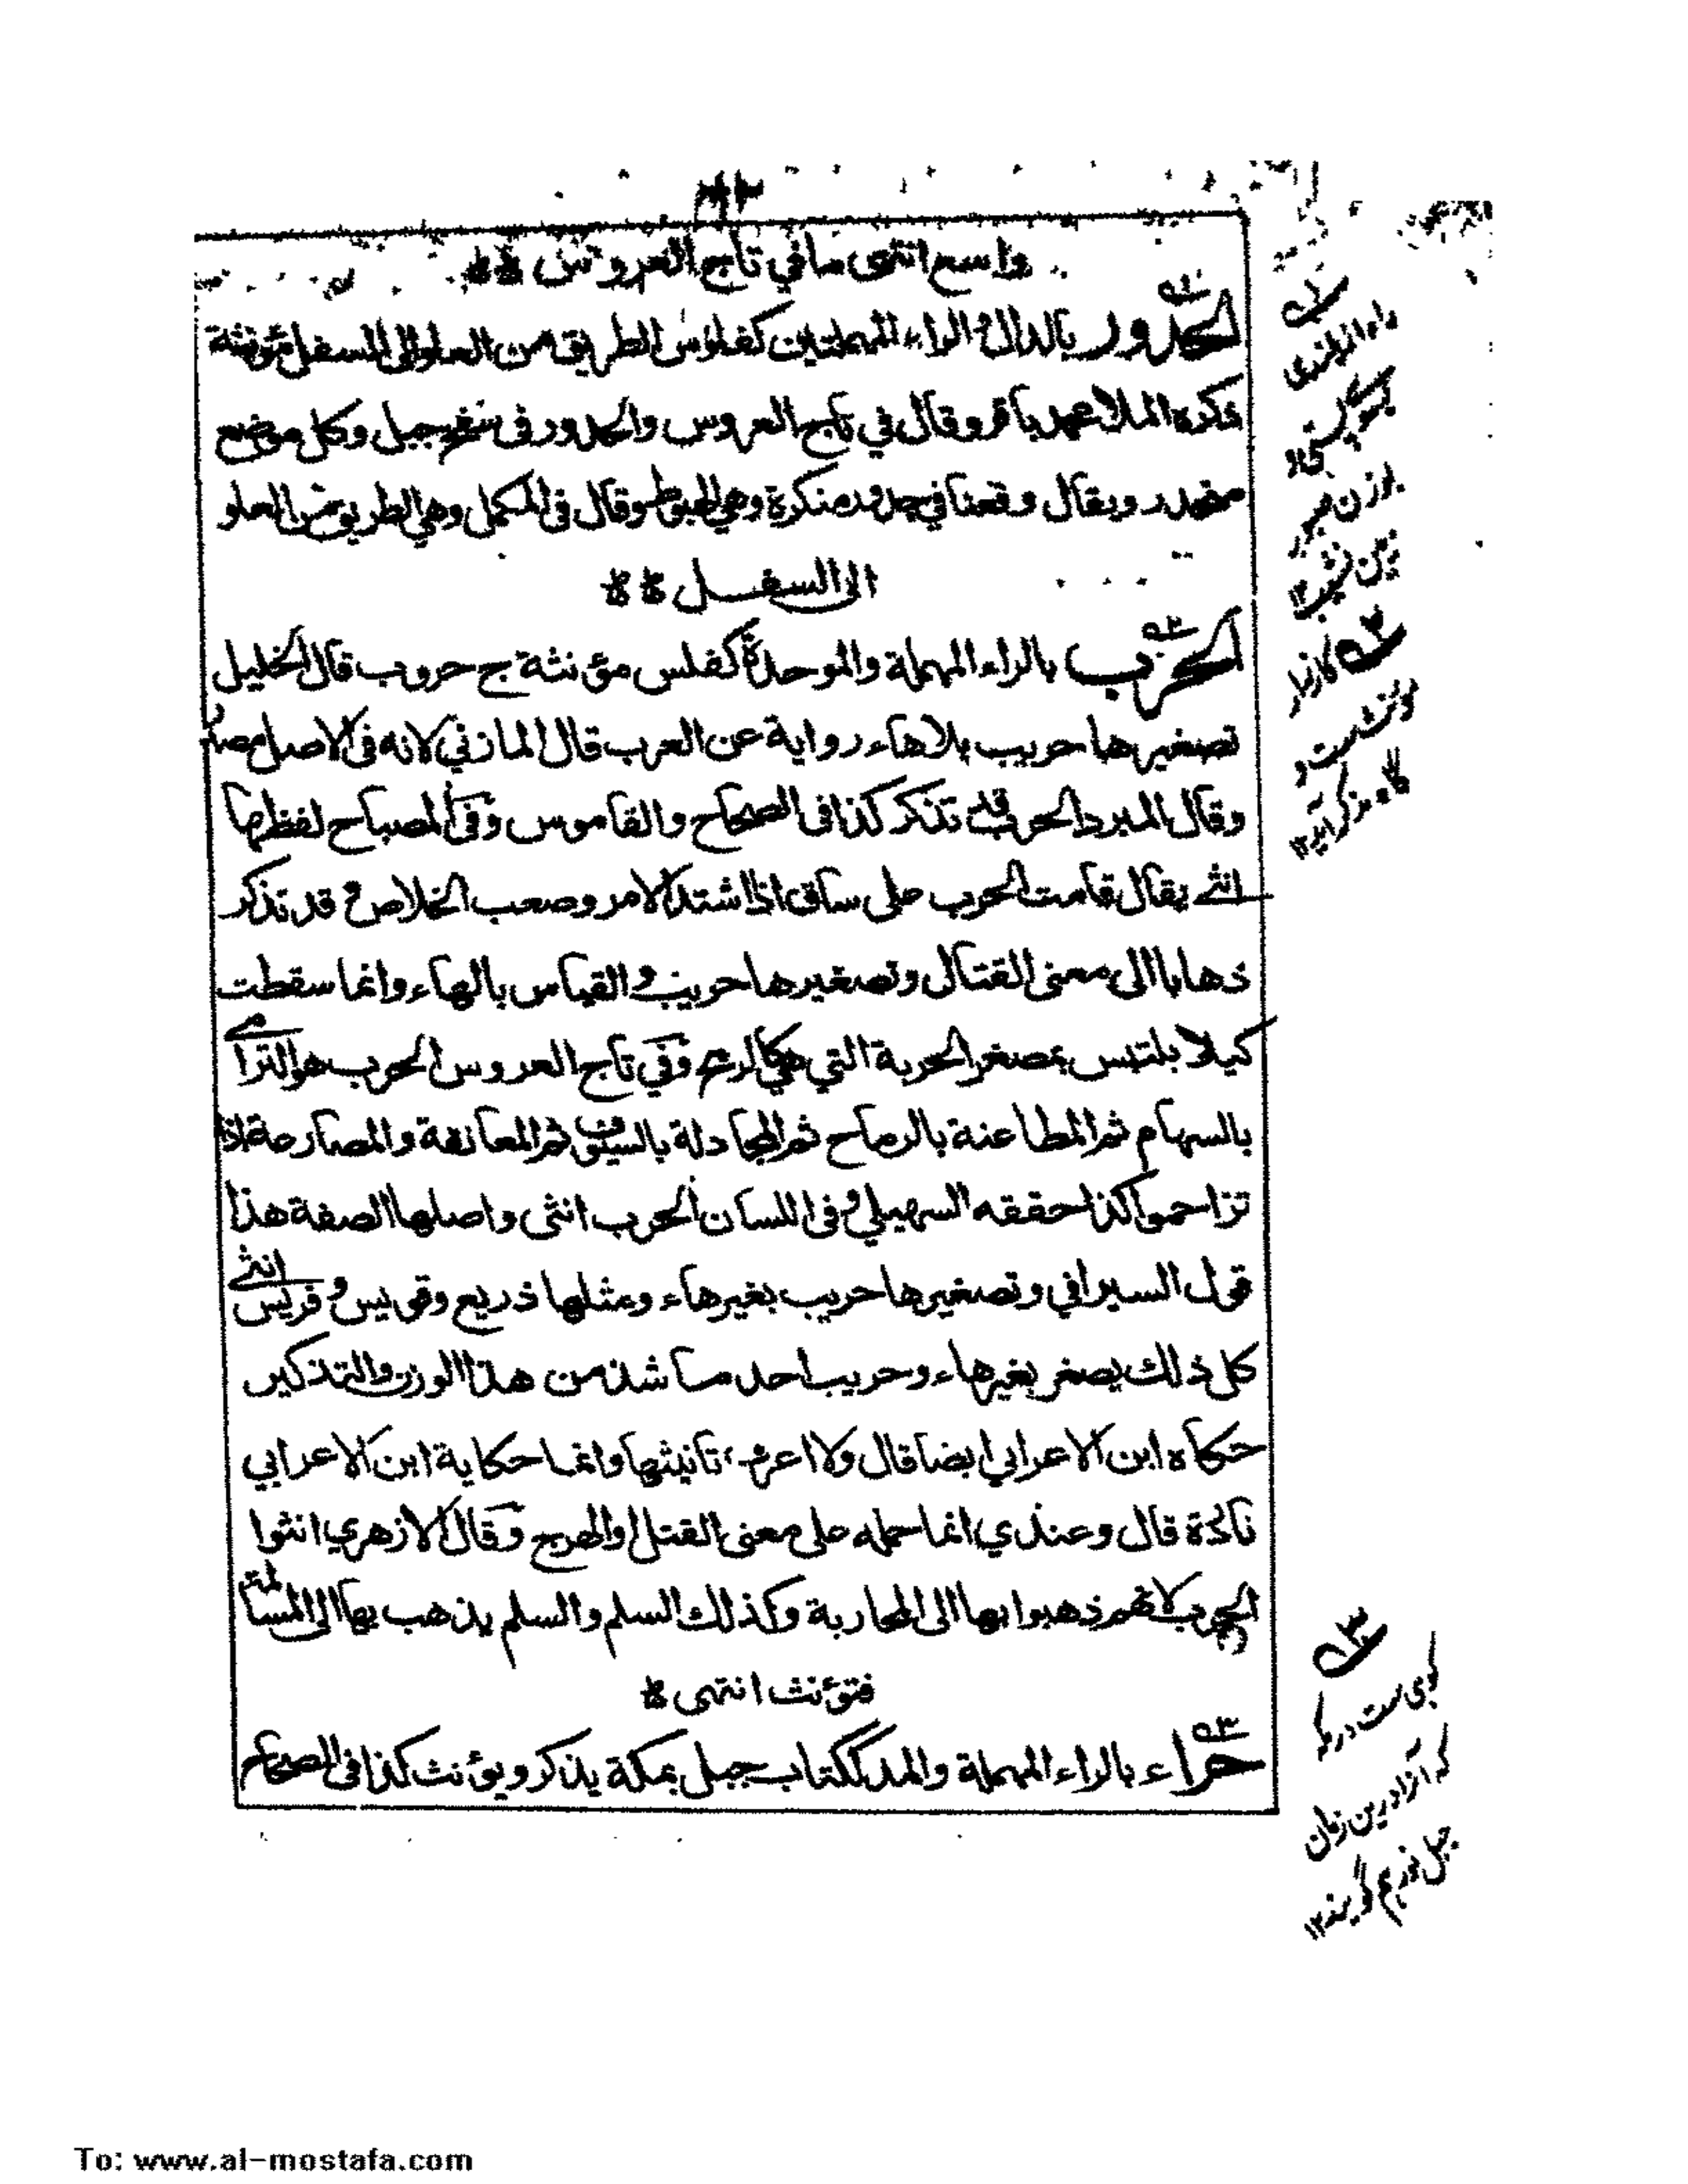 واسع انتهى ما في تاج العروس
الحدور بالدال والراء المهملتين كفلوس الطريق من العلو الى السفل مؤنثة
ذكره الملا محمد باقر وقال في تاج العروس والحدور في سفح جبل وكل موضع
منحدر ويقال وقعنا في حدور منكرة وهي الهبوط وقال في المكمل وهي الطريق من العلو
الى السفل
الحرب بالراء المهملة والموحدة كفلس مؤنثة ج حروب قال الخليل
تصغيرها حريب بلا هاء رواية عن العرب قال المازني لانه في الاصل مصدر
وقال المبرد الحرب قد تذكر كذا في الصحاح والقاموس وفي المصباح لفظها
انثى يقال قامت الحرب على ساق اذا اشتد الامر وصعب الخلاص وقد تذكر
ذهابا الى معنى القتال وتصغيرها حريب والقياس بالهاء وانما سقطت
كيلا يلتبس بمصغر الحربة التي هي كالرمح وفي تاج العروس الحرب هو الترامي
بالسهام ثم المطاعنة بالرماح ثم المجادلة بالسيوف ثم المعانقة والمصارعة اذا
تزاحموا كذا حققه السهيلي وفي اللسان الحرب انثى واصلها الصفة هذا
قول السيرافي وتصغيرها حريب بغير هاء ومثلها ذريع وقويس وفريس انثى
كل ذلك يصغر بغير هاء وحريب احد ما شذ من هذا الوزن والتذكير
حكاه ابن الاعرابي ايضا قال ولا اعرف تانيثها وانما حكاية ابن الاعرابي
نادرة قال وعندي انما حمله على معنى القتل او الهرج وقال الازهري انثوا
الحرب لانهم ذهبوا بها الى المحاربة وكذلك السلم والسلم يذهب بها الى المسالمة
فتؤنث انتهى
حراء بالراء المهملة والمد ككتاب جبل بمكة يذكر ويؤنث كذا في الصحاح
راه از بلندی
بسوی پستی و
زمین نشیب ۱۲
کارزار
مونث ست و
گاه مذکر آید ۱۲
کوهی ست در مکه
که آنرا درین زمان
جبل نور هم گویند ۱۲
To: www.al-mostafa.com